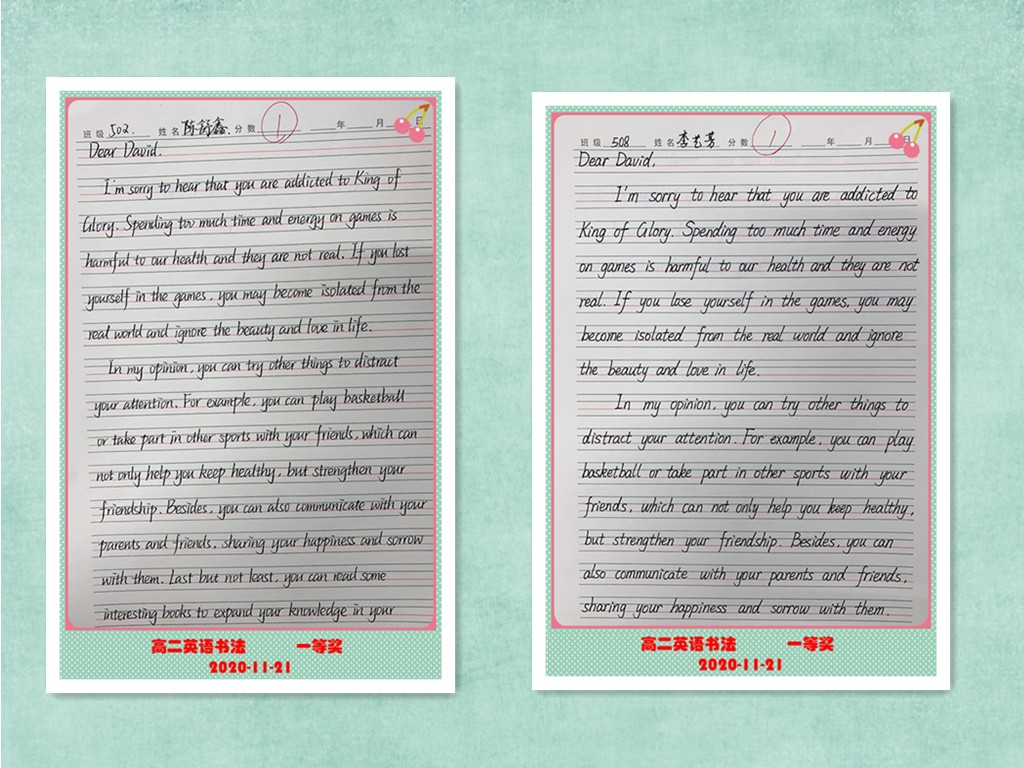 班级 502. 姓名 陈舒鑫. 分数 1 年 月 日
Dear David.
I'm sorry to hear that you are addicted to King of
Glory. Spending too much time and energy on games is
harmful to our health and they are not real. If you lost
yourself in the games, you may become isolated from the
real world and ignore the beauty and love in life.
In my opinion, you can try other things to distract
your attention. For example, you can play basketball
or take part in other sports with your friends, which can
not only help you keep healthy, but strengthen your
friendship. Besides, you can also communicate with your
parents and friends, sharing your happiness and sorrow
with them. Last but not least, you can read some
interesting books to expand your knowledge in your
高二英语书法 一等奖
2020-11-21
班级 508 姓名 李艺芳 分数 1 年 月 日
Dear David,
I'm sorry to hear that you are addicted to
King of Glory. Spending too much time and energy
on games is harmful to our health and they are not
real. If you lose yourself in the games, you may
become isolated from the real world and ignore
the beauty and love in life.
In my opinion, you can try other things to
distract your attention. For example, you can play
basketball or take part in other sports with your
friends, which can not only help you keep healthy,
but strengthen your friendship. Besides, you can
also communicate with your parents and friends,
sharing your happiness and sorrow with them.
高二英语书法 一等奖
2020-11-21